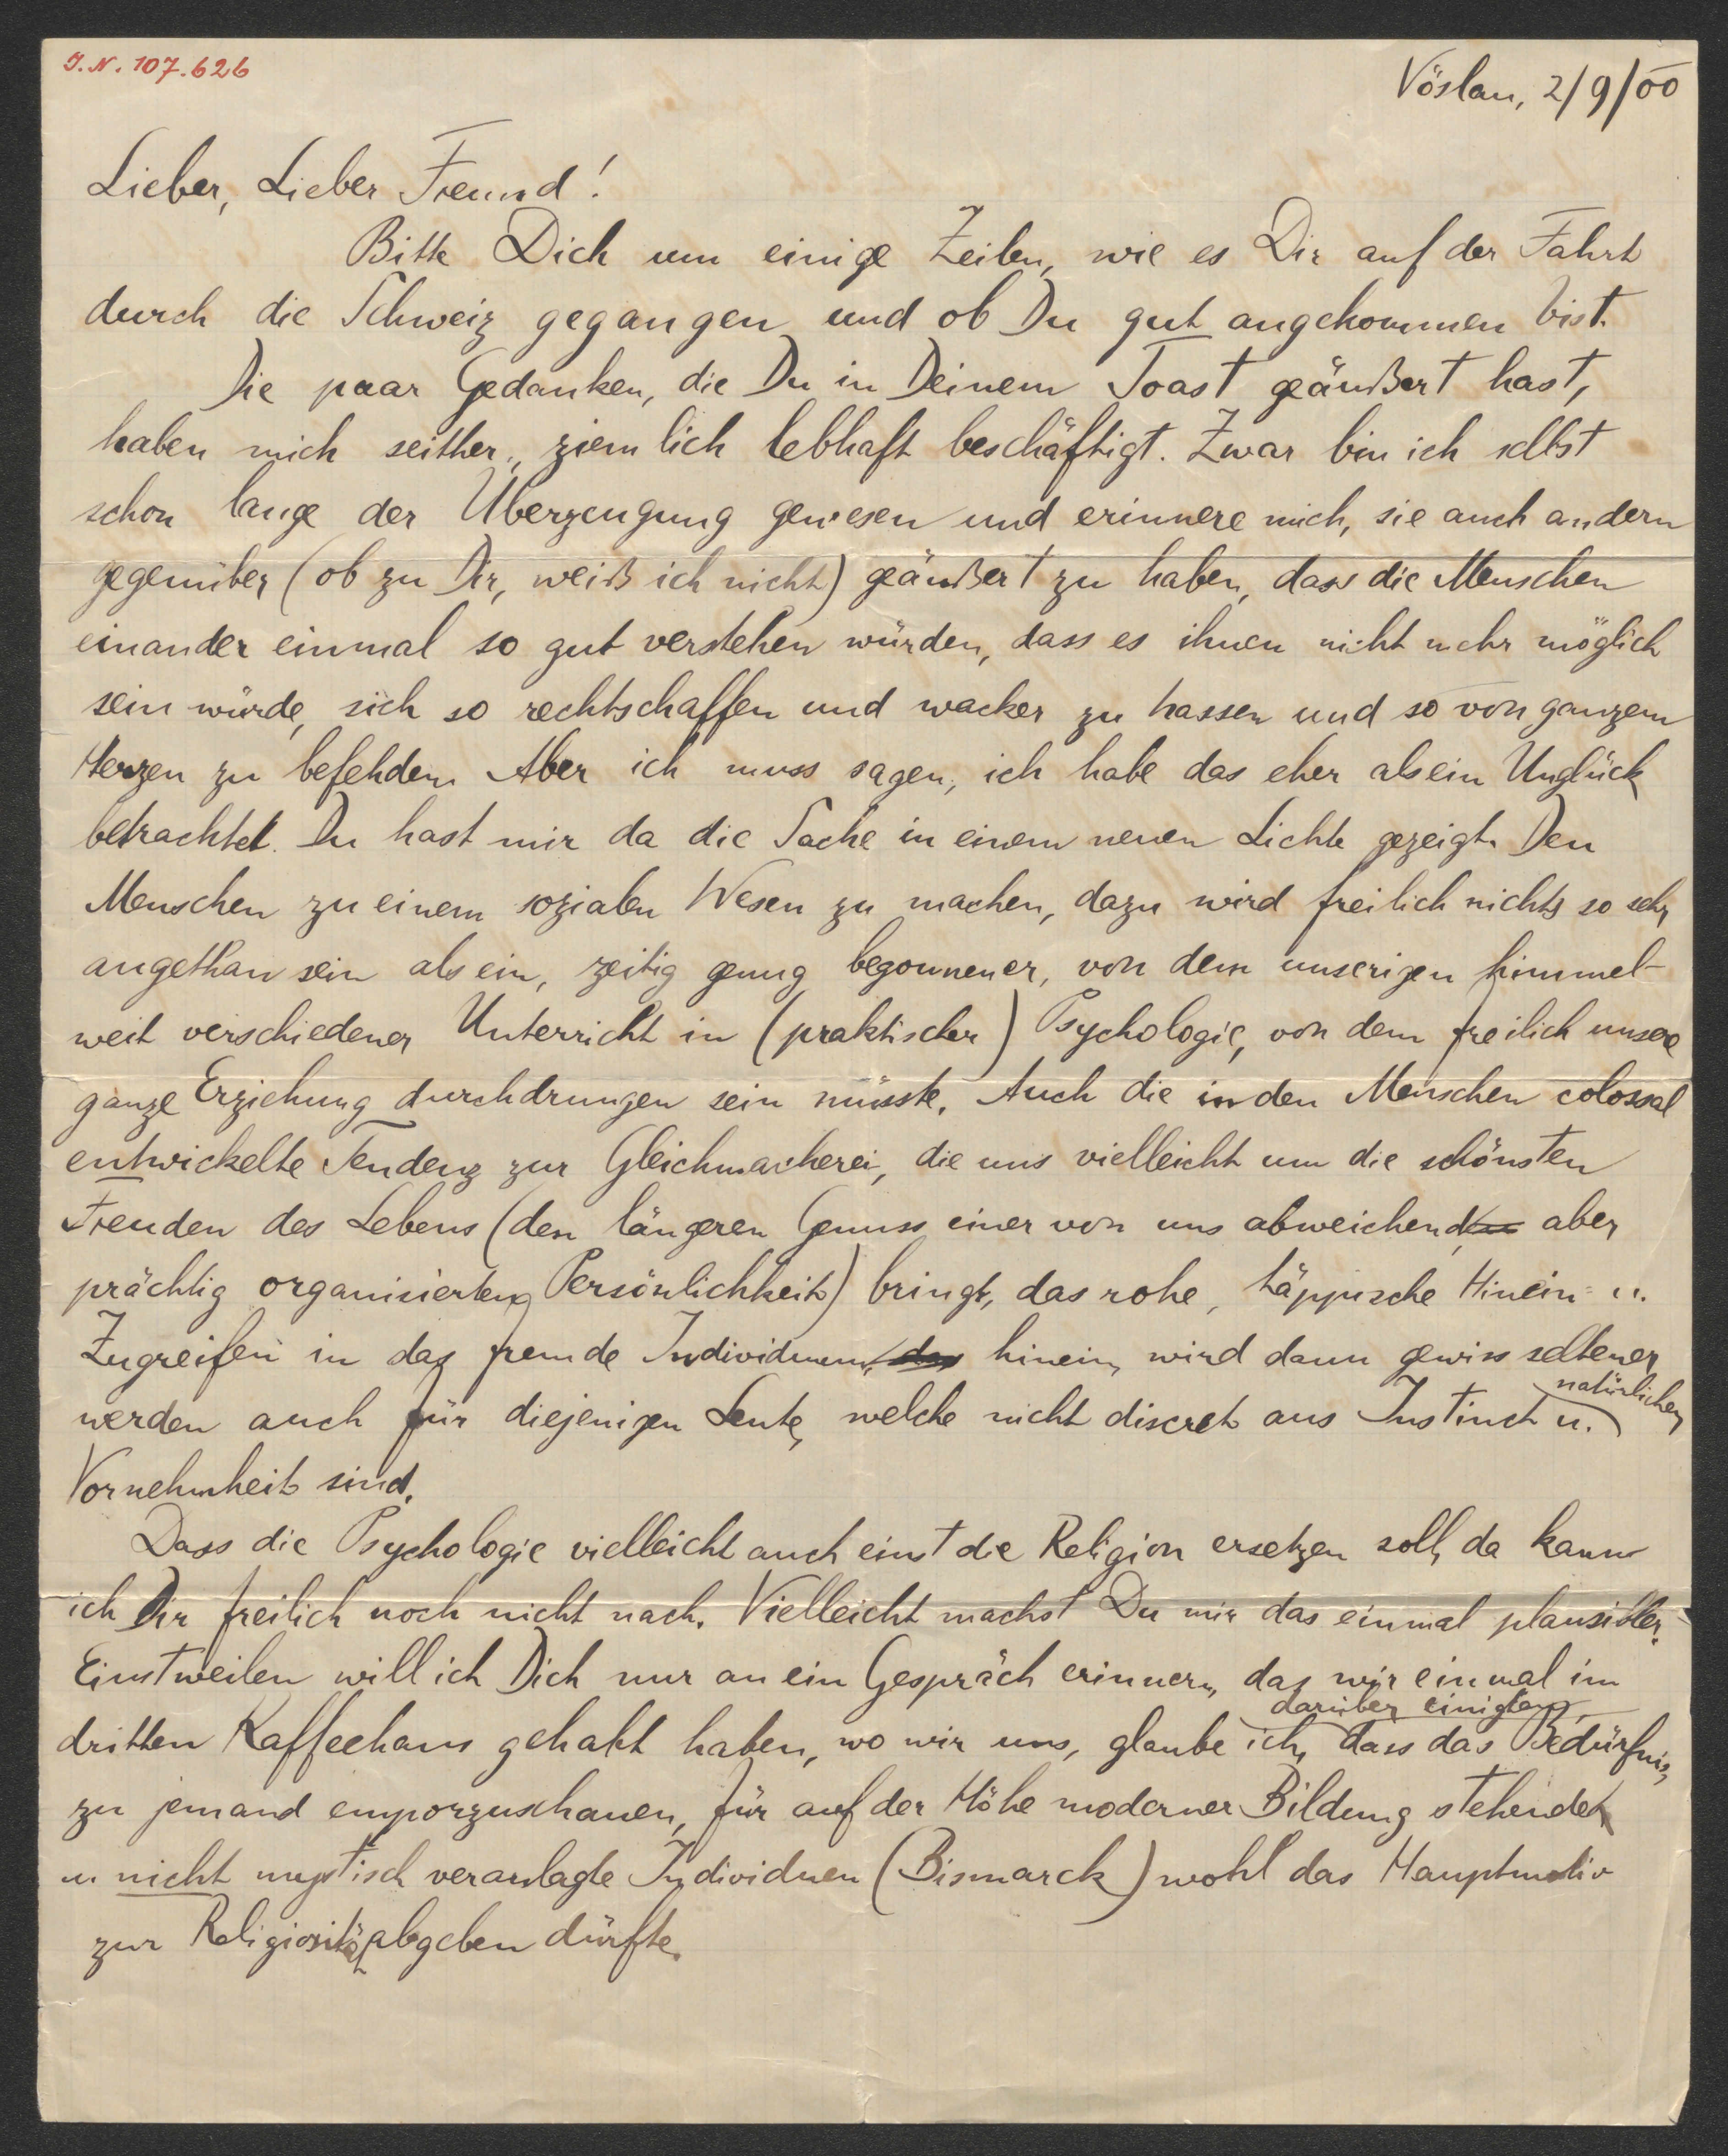 J. N. 107.626
Vöslau, 2/9/00
Lieber, Lieber Freund!
Bitte Dich um einige Zeilen, wie es Dir auf der Fahrt
durch die Schweiz gegangen und ob Du gut angekommen bist.
Die paar Gedanken, die Du in Deinem Toast geäußert hast,
haben mich seither, ziemlich lebhaft beschäftigt. Zwar bin ich selbst
schon lange der Überzeugung gewesen und erinnere mich, sie auch andern
gegenüber (ob zu Dir, weiß ich nicht) geäußert zu haben, dass die Menschen
einander einmal so gut verstehen würden, dass es ihnen nicht mehr möglich
sein würde, sich so rechtschaffen und wacker zu hassen und so von ganzem
Herzen zu befehden. Aber ich muss sagen, ich habe das eher als ein Unglück
betrachtet. Du hast mir da die Sache in einem neuen Lichte gezeigt. Den
Menschen zu einem sozialen Wesen zu machen, dazu wird freilich nichts so sehr
angethan sein als ein, zeitig genug begonnener, von dem unserigen himmel-
weit verschiedener Unterricht in (praktischer) Psychologie, von dem freilich unsere
ganze Erziehung durchdrungen sein müsste. Auch die in den Menschen colossal
entwickelte Tendenz zur Gleichmacherei, die uns vielleicht um die schönsten
Freuden des Lebens (den längeren Genuss einer von uns abweichenden aber
prächtig organisierten Persönlichkeit) bringt, das rohe, täppische Hinein- u.
Zugreifen in das fremde Individuum, das hinein, wird dann gewiss seltener
werden auch für diejenigen Leute, welche nicht discret aus Instinct u. natürlicher
Vornehmheit sind.
Dass die Psychologie vielleicht auch einst die Religion ersetzen soll, da kann
ich Dir freilich noch nicht nach. Vielleicht machst Du mir das einmal plausibler.
Einstweilen will ich Dich nur an ein Gespräch erinnern, das wir einmal im
dritten Kaffeehaus gehabt haben, wo wir uns, glaube ich, darüber einigten, dass das Bedürfnis,
zu jemand emporzuschauen, für auf der Höhe moderner Bildung stehende
u. nicht mystisch veranlagte Individuen (Bismarck) wohl das Hauptmotiv
zur Religiosität abgeben dürfte.